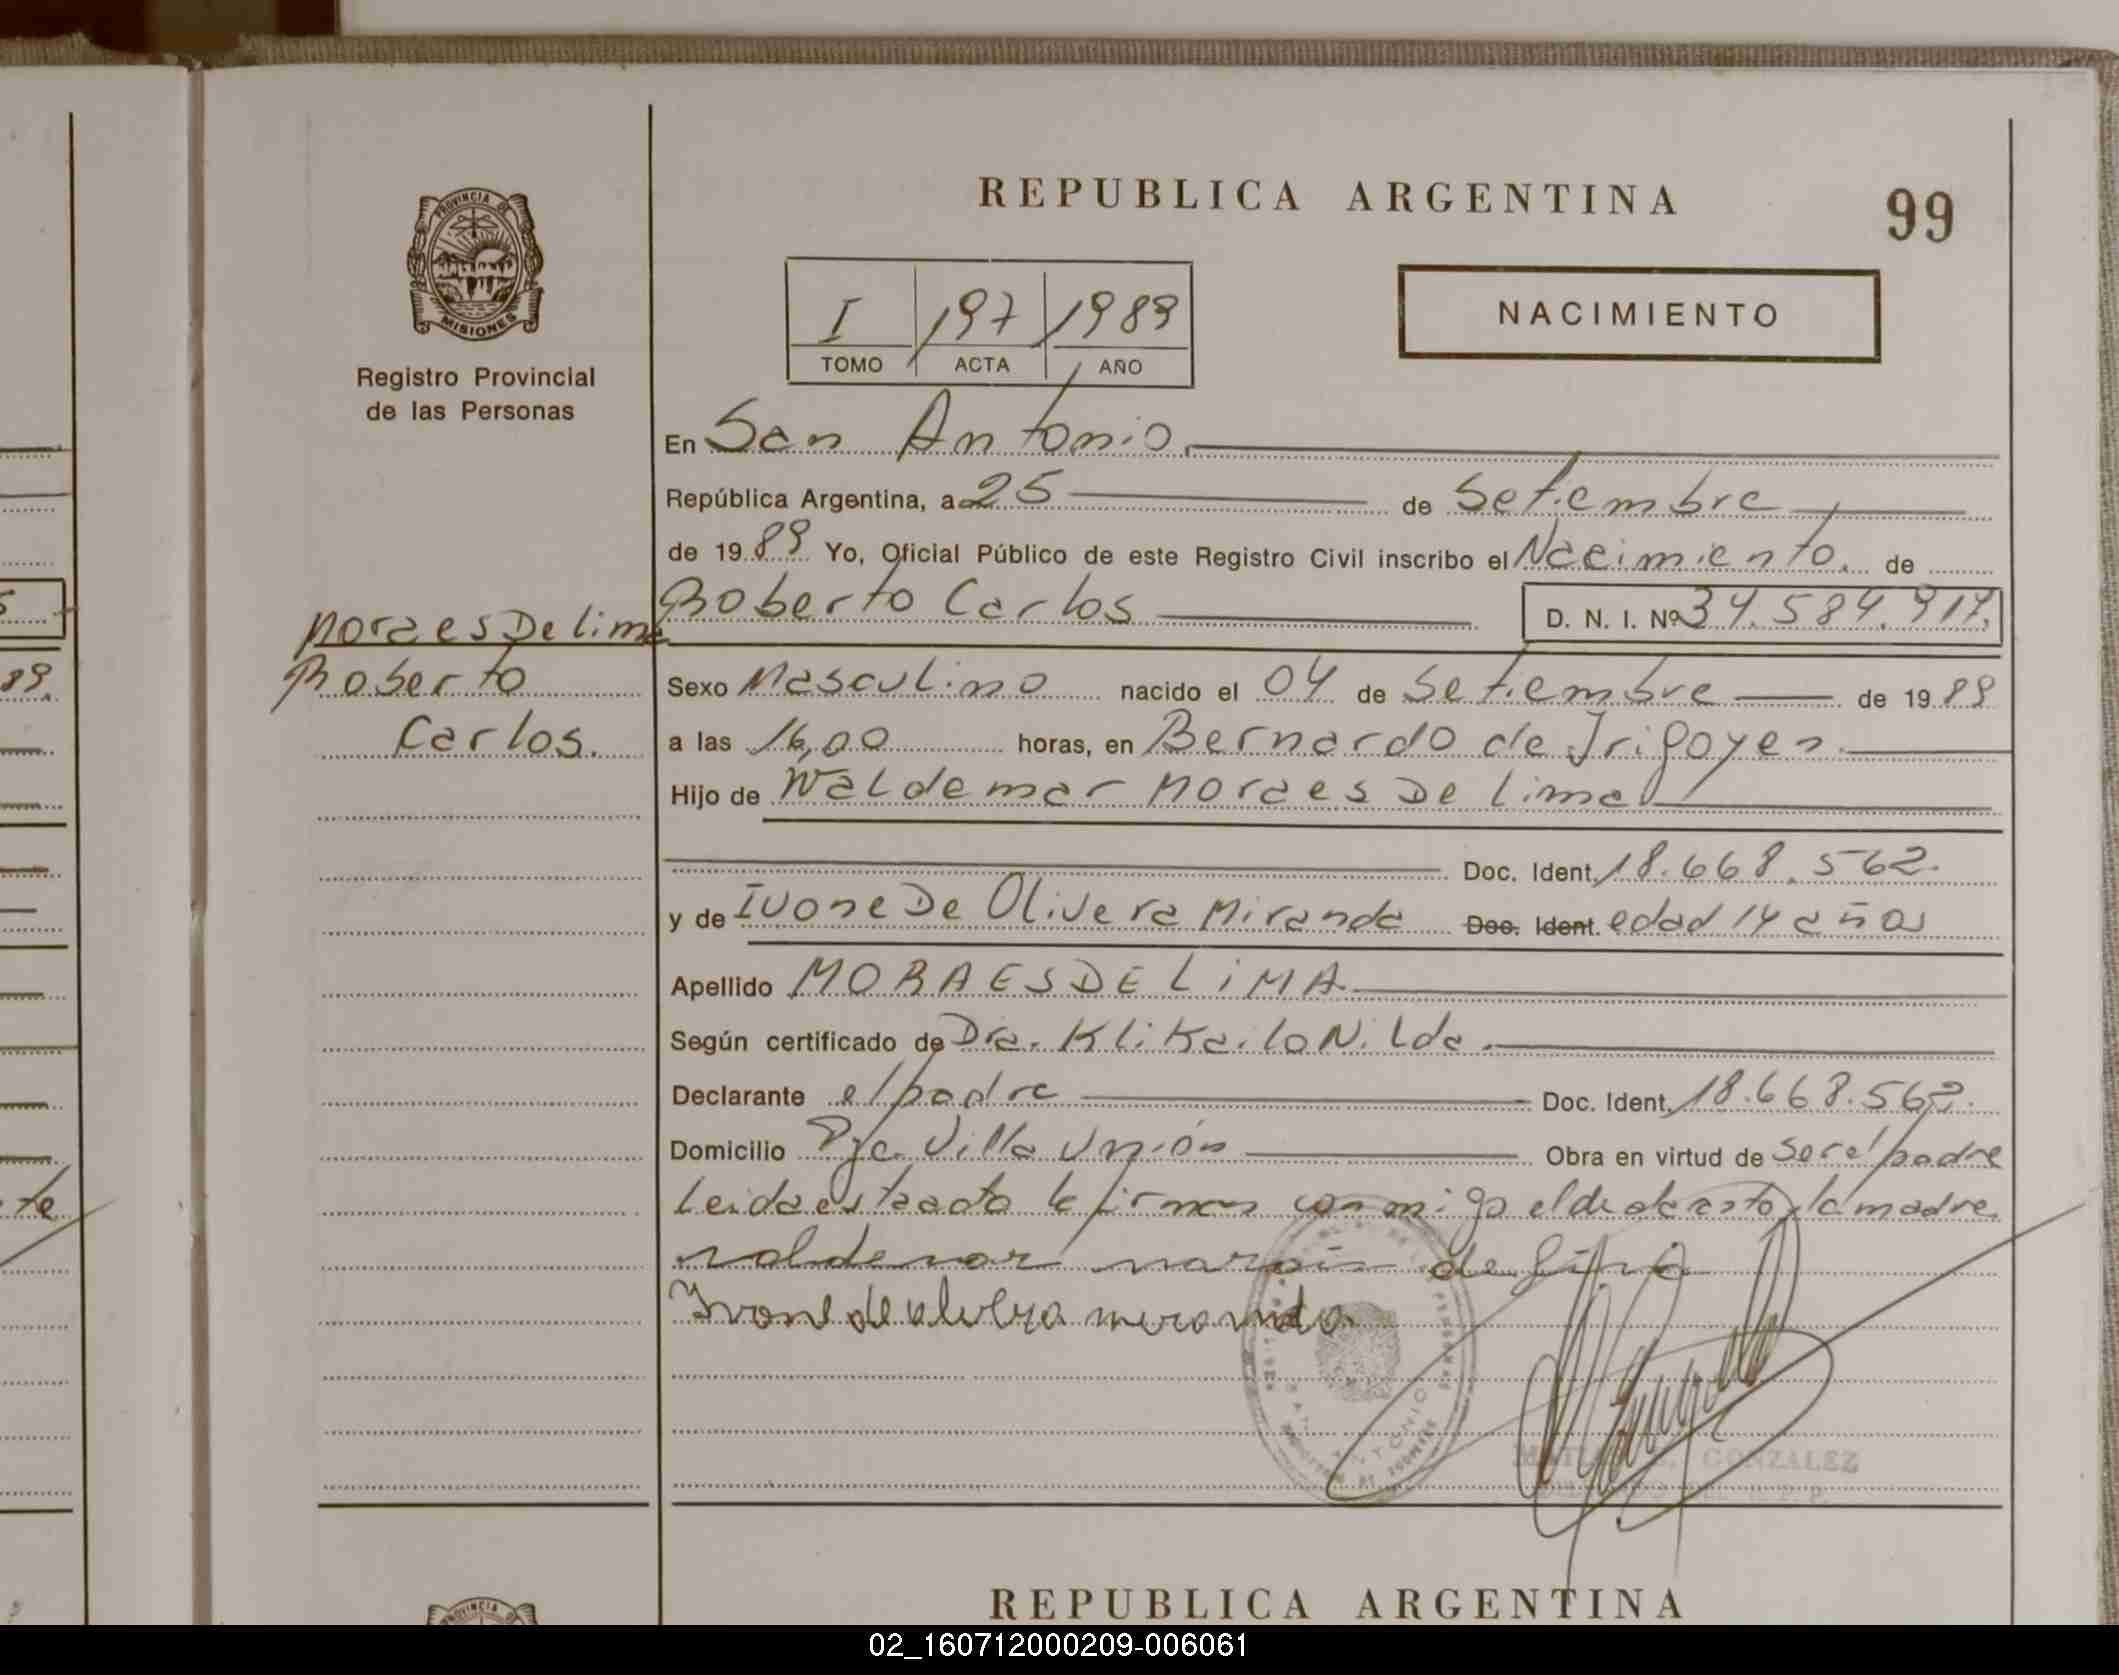 REPUBLICA ARGENTINA
99
PROVINCIA DE
MISIONES
Registro Provincial
de las Personas
I 197 1989
TOMO ACTA AÑO
NACIMIENTO
En San Antonio
República Argentina, a 25 de Setiembre
de 1989 Yo, Oficial Público de este Registro Civil inscribo el Nacimiento. de
Roberto Carlos D. N. I. Nº 34.584.917.
Moraes De lima
Roberto
Carlos.
Sexo Masculino nacido el 04 de Setiembre de 1989
a las 16,00 horas, en Bernardo de Irigoyen.
Hijo de Waldemar Moraes De Lima
Doc. Ident. 18.668.562.
y de Ivone De Olivera Miranda Doc. Ident. edad 14 años
Apellido MORAES DE LiMA.
Según certificado de Dra. Klikailo Nilda.
Declarante el padre Doc. Ident. 18.668.562.
Domicilio Pje. Villa Unión Obra en virtud de ser el padre
Leida esta acta la firman conmigo el y la madre
de Lima
Ivone de
GONZALEZ
REPUBLICA ARGENTINA
PROVINCIA DE
89.
te
02_160712000209-006061